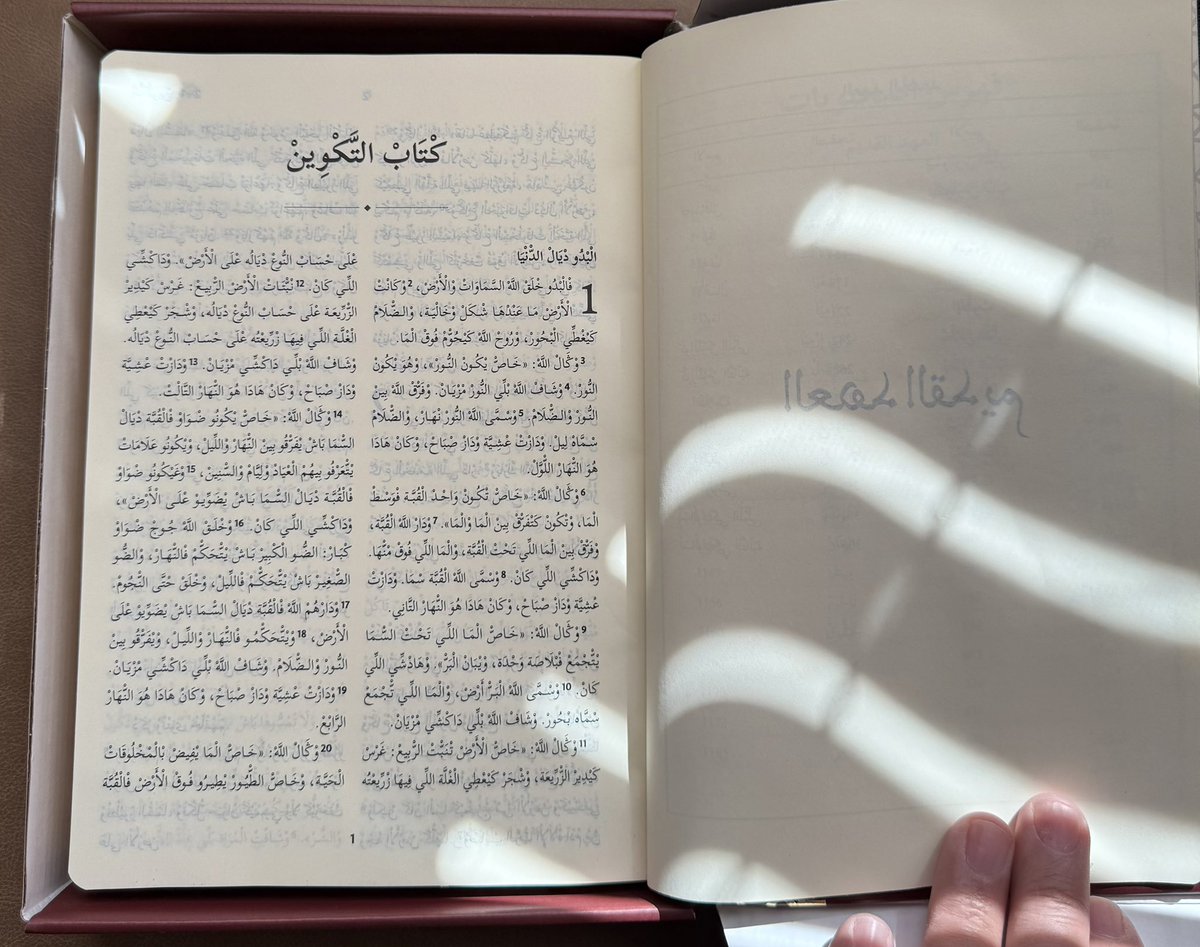 كْتَابْ التَّكْوِينْ
الْبْدُو دْيَالْ الدّْنْيَا
1 فْالْبْدُو خْلَقْ اللَّهْ السَّمَاوَاتْ وْالْأَرْضْ، 2 وْكَانْتْ
الْأَرْضْ مَا عَنْدْهَا شْكَلْ وْخَالْيَة، وْالضّْلَامْ
كَيْغْطِّي الْبْحُورْ، وْرُوحْ اللَّهْ كَيْحُومْ فُوقْ الْمَا.
3 وْݣَالْ اللَّهْ: «خَاصّْ يْكُونْ النُّورْ»، وْهُوَ يْكُونْ
النُّورْ. 4 وْشَافْ اللَّهْ بْلِّي النُّورْ مْزْيَانْ. وْفْرَّقْ اللَّهْ بِينْ
النُّورْ وْالضّْلَامْ. 5 وْسْمَّى اللَّهْ النُّورْ نْهَارْ، وْالضّْلَامْ
سْمَّاهْ لِيلْ. وْدَازْتْ عْشِيَّة وْدَازْ صْبَاحْ، وْكَانْ هَادَا
هُوَ النّْهَارْ اللّْوّْلْ.
6 وْݣَالْ اللَّهْ: «خَاصّْ تْكُونْ وَاحْدْ الْقُبَّة فْوَسْطْ
الْمَا، وْتْكُونْ كَتْفْرَّقْ بِينْ الْمَا وْالْمَا». 7 وْدَارْ اللَّهْ الْقُبَّة،
وْفْرَّقْ بِينْ الْمَا اللِّي تَحْتْ الْقُبَّة، وْالْمَا اللِّي فُوقْ مْنّْهَا.
وْدَاكْشِّي اللِّي كَانْ. 8 وْسْمَّى اللَّهْ الْقُبَّة سْمَا. وْدَازْتْ
عْشِيَّة وْدَازْ صْبَاحْ، وْكَانْ هَادَا هُوَ النّْهَارْ التَّانِي.
9 وْݣَالْ اللَّهْ: «خَاصّْ الْمَا اللِّي تَحْتْ السّْمَا
يْتّْجْمَعْ فْبْلَاصَة وْحْدَة، وْيْبَانْ الْبَرّْ». وْهَادْشِّي اللِّي
كَانْ. 10 وْسْمَّى اللَّهْ الْبَرّْ أَرْضْ، وْالْمَا اللِّي تّْجْمَعْ
سْمَّاهْ بْحُورْ. وْشَافْ اللَّهْ بْلِّي دَاكْشِّي مْزْيَانْ.
11 وْݣَالْ اللَّهْ: «خَاصّْ الْأَرْضْ تْنَبّْتْ الرّْبِيعْ: غَرْسْ
كَيْدِيرْ الزّْرِّيعَة، وْشْجَرْ كَيْعْطِي الْغْلَّة اللِّي فِيهَا زْرِّيعْتُه
عْلَى حْسَابْ النُّوعْ دْيَالُه عْلَى الْأَرْضْ». وْدَاكْشِّي
اللِّي كَانْ. 12 نَبّْتَاتْ الْأَرْضْ الرّْبِيعْ: غَرْسْ كَيْدِيرْ
الزّْرِّيعَة عْلَى حْسَابْ النُّوعْ دْيَالُه، وْشْجَرْ كَيْعْطِي
الْغْلَّة اللِّي فِيهَا زْرِّيعْتُه عْلَى حْسَابْ النُّوعْ دْيَالُه.
وْشَافْ اللَّهْ بْلِّي دَاكْشِّي مْزْيَانْ. 13 وْدَازْتْ عْشِيَّة
وْدَازْ صْبَاحْ، وْكَانْ هَادَا هُوَ النّْهَارْ التَّالْتْ.
14 وْݣَالْ اللَّهْ: «خَاصّْ يْكُونُو ضْوَاوْ فْالْقُبَّة دْيَالْ
السّْمَا بَاشْ يْفَرّْقُو بِينْ النّْهَارْ وْاللِّيلْ، وْيْكُونُو عَلَامَاتْ
يْتّْعَرْفُو بِيهُمْ الْعْيَادْ وْلِيَّامْ وْالسّْنِينْ، 15 وْغَيْكُونُو ضْوَاوْ
فْالْقُبَّة دْيَالْ السّْمَا بَاشْ يْضَوِّيوْ عْلَى الْأَرْضْ»،
وْدَاكْشِّي اللِّي كَانْ. 16 وْخْلَقْ اللَّهْ جُوجْ ضْوَاوْ
كْبَارْ: الضُّو الْكْبِيرْ بَاشْ يْتْحَكّْمْ فْالنّْهَارْ، وْالضُّو
الصّْغِيرْ بَاشْ يْتْحَكّْمْ فْاللِّيلْ، وْخْلَقْ حْتَّى النّْجُومْ.
17 وْدَارْهُمْ اللَّهْ فْالْقُبَّة دْيَالْ السّْمَا بَاشْ يْضَوِّيوْ عْلَى
الْأَرْضْ، 18 وْيْتْحَكّْمُو فْالنّْهَارْ وْاللِّيلْ، وْيْفَرّْقُو بِينْ
النُّورْ وْالضّْلَامْ. وْشَافْ اللَّهْ بْلِّي دَاكْشِّي مْزْيَانْ.
19 وْدَازْتْ عْشِيَّة وْدَازْ صْبَاحْ، وْكَانْ هَادَا هُوَ النّْهَارْ
الرَّابْعْ.
20 وْݣَالْ اللَّهْ: «خَاصّْ الْمَا يْفِيضْ بْالْمْخْلُوقَاتْ
الْحَيَّة، وْخَاصّْ الطّْيُورْ يْطِيرُو فُوقْ الْأَرْضْ فْالْقُبَّة
1
العهد القديم